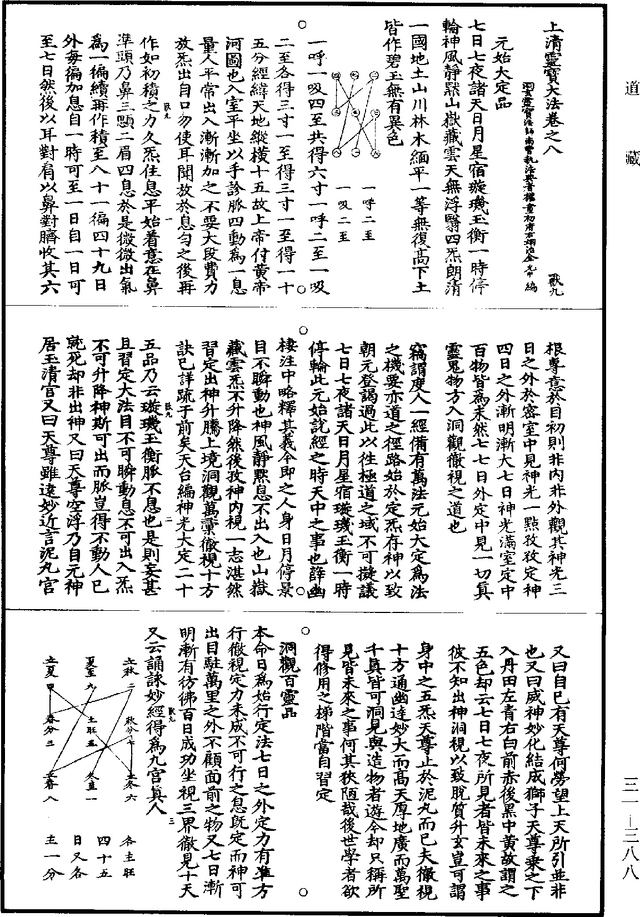 道藏
上清靈寶大法卷之八
獸九
洞玄靈寶法師南曹執法典者權童初府右翊治金允中編
元始大定品
七日七夜諸天日月星宿璇璣玉衡一時停
輪神風靜默山嶽藏雲天無浮翳四炁朗清
一國地土山川林木緬平一等無復高下土
皆作碧玉無有異色
一呼二至
一吸二至
一呼一吸四至共得六寸一呼二至一吸
二至各得三寸一至得三寸一至得一十
五分經緯天地縱橫十五故上帝付黃帝
河圖也入室平坐以手診脈四動為一息
量人平常出入漸漸加之不要大段費力
放炁出自口勿使耳聞放於息勻之後再
作如初積之力久炁住息平始着意在鼻
準頭乃鼻三顋二眉四息於是微微出氣
為一徧續再作積至八十一徧四十九日
外每徧加息自一時可至一日自一日可
至七日然後以耳對肩以鼻對臍收其六
根專意於目初則非內非外觀其神光三
日之外於密室中見神光一點孜孜定神
四日之外漸明漸大七日神光滿室定中
百物皆為未然七七日外定中見一切真
靈鬼物方入洞觀徹視之道也
竊謂度人一經備有萬法元始大定為法
之機要亦道之徑路始於定炁存神以致
朝元登謁過此以往極道之域不可擬議
七日七夜諸天日月星宿璇璣玉衡一時
停輪此元始說經之時天中之事也薛幽
棲注中略釋其義今即之人身日月停景
目不瞬動也神風靜默息不出入也山嶽
藏雲炁不升降然後孜神內視一志湛然
習定出神升騰上境洞觀萬彙徹視十方
訣已詳疏于前矣天台編神光大定二十
五品乃云璇璣玉衡脈不息也是則妄甚
且習定大法目不可瞬動息不可出入炁
不可升降神斯可出而脈豈得不動人已
就死却非出神又曰天尊空浮乃自元神
居玉清宮又曰天尊雖遠妙近言泥丸宮
又曰自己有天尊何勞望上天所引並非
也又曰威神妙化結成獅子天尊乘之下
入丹田左青右白前赤後黑中黃故謂之
五色却云七日七夜所見者皆未來之事
彼不知出神洞視以致脫質升玄豈可謂
身中之五炁天尊止於泥丸而已夫徹視
十方通幽達妙大而高天厚地廣而萬聖
千真皆可洞見與造物者遊今却只稱所
見皆未來之事何其狹陋哉後世學者欲
得修用之梯階當自習定
洞觀百靈品
本命日為始行定法七日之外定力有準方
行徹視定力未成不可行之息既定而神可
出目駐萬里之外不顧面前之物又七日漸
明漸有彷彿百日成功坐視三界徹見十天
又云誦詠妙經得為九宮真人
立秋二
秋分七
立冬六
夏至九
土旺五
冬至一
立夏四
春分三
立春八
各主旺
四十五
日又各
主一分
三一—三八八